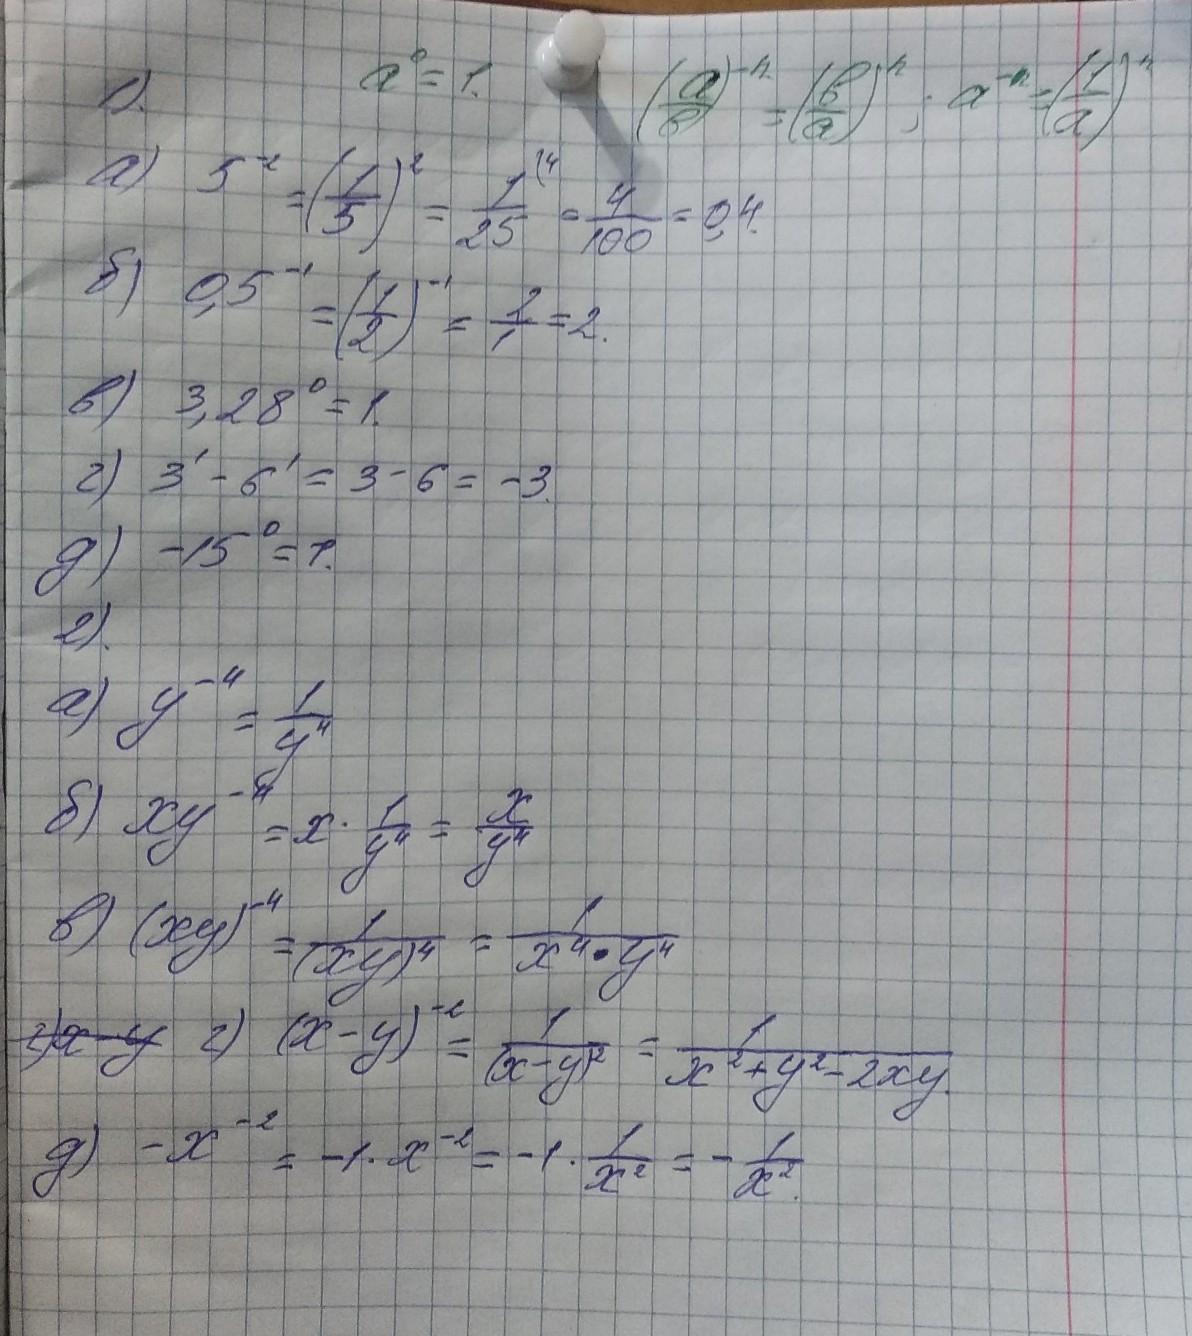 1). a⁰ = 1. (a/в)⁻ⁿ = (в/a)ⁿ; a⁻ⁿ = (1/a)ⁿ
а) 5⁻² = (1/5)² = 1/25 (4 = 4/100 = 0,4.
б) 0,5⁻¹ = (1/2)⁻¹ = 2/1 = 2.
в) 3,28⁰ = 1.
г) 3¹ - 6¹ = 3 - 6 = -3.
д) -15⁰ = 1.
2).
а) y⁻⁴ = 1/y⁴
б) xy⁻⁴ = x · 1/y⁴ = x/y⁴
в) (xy)⁻⁴ = 1/(xy)⁴ = 1/x⁴•y⁴
г) x-y г) (x-y)⁻² = 1/(x-y)² = 1/x²+y²-2xy.
д) -x⁻² = -1·x⁻² = -1·1/x² = -1/x².